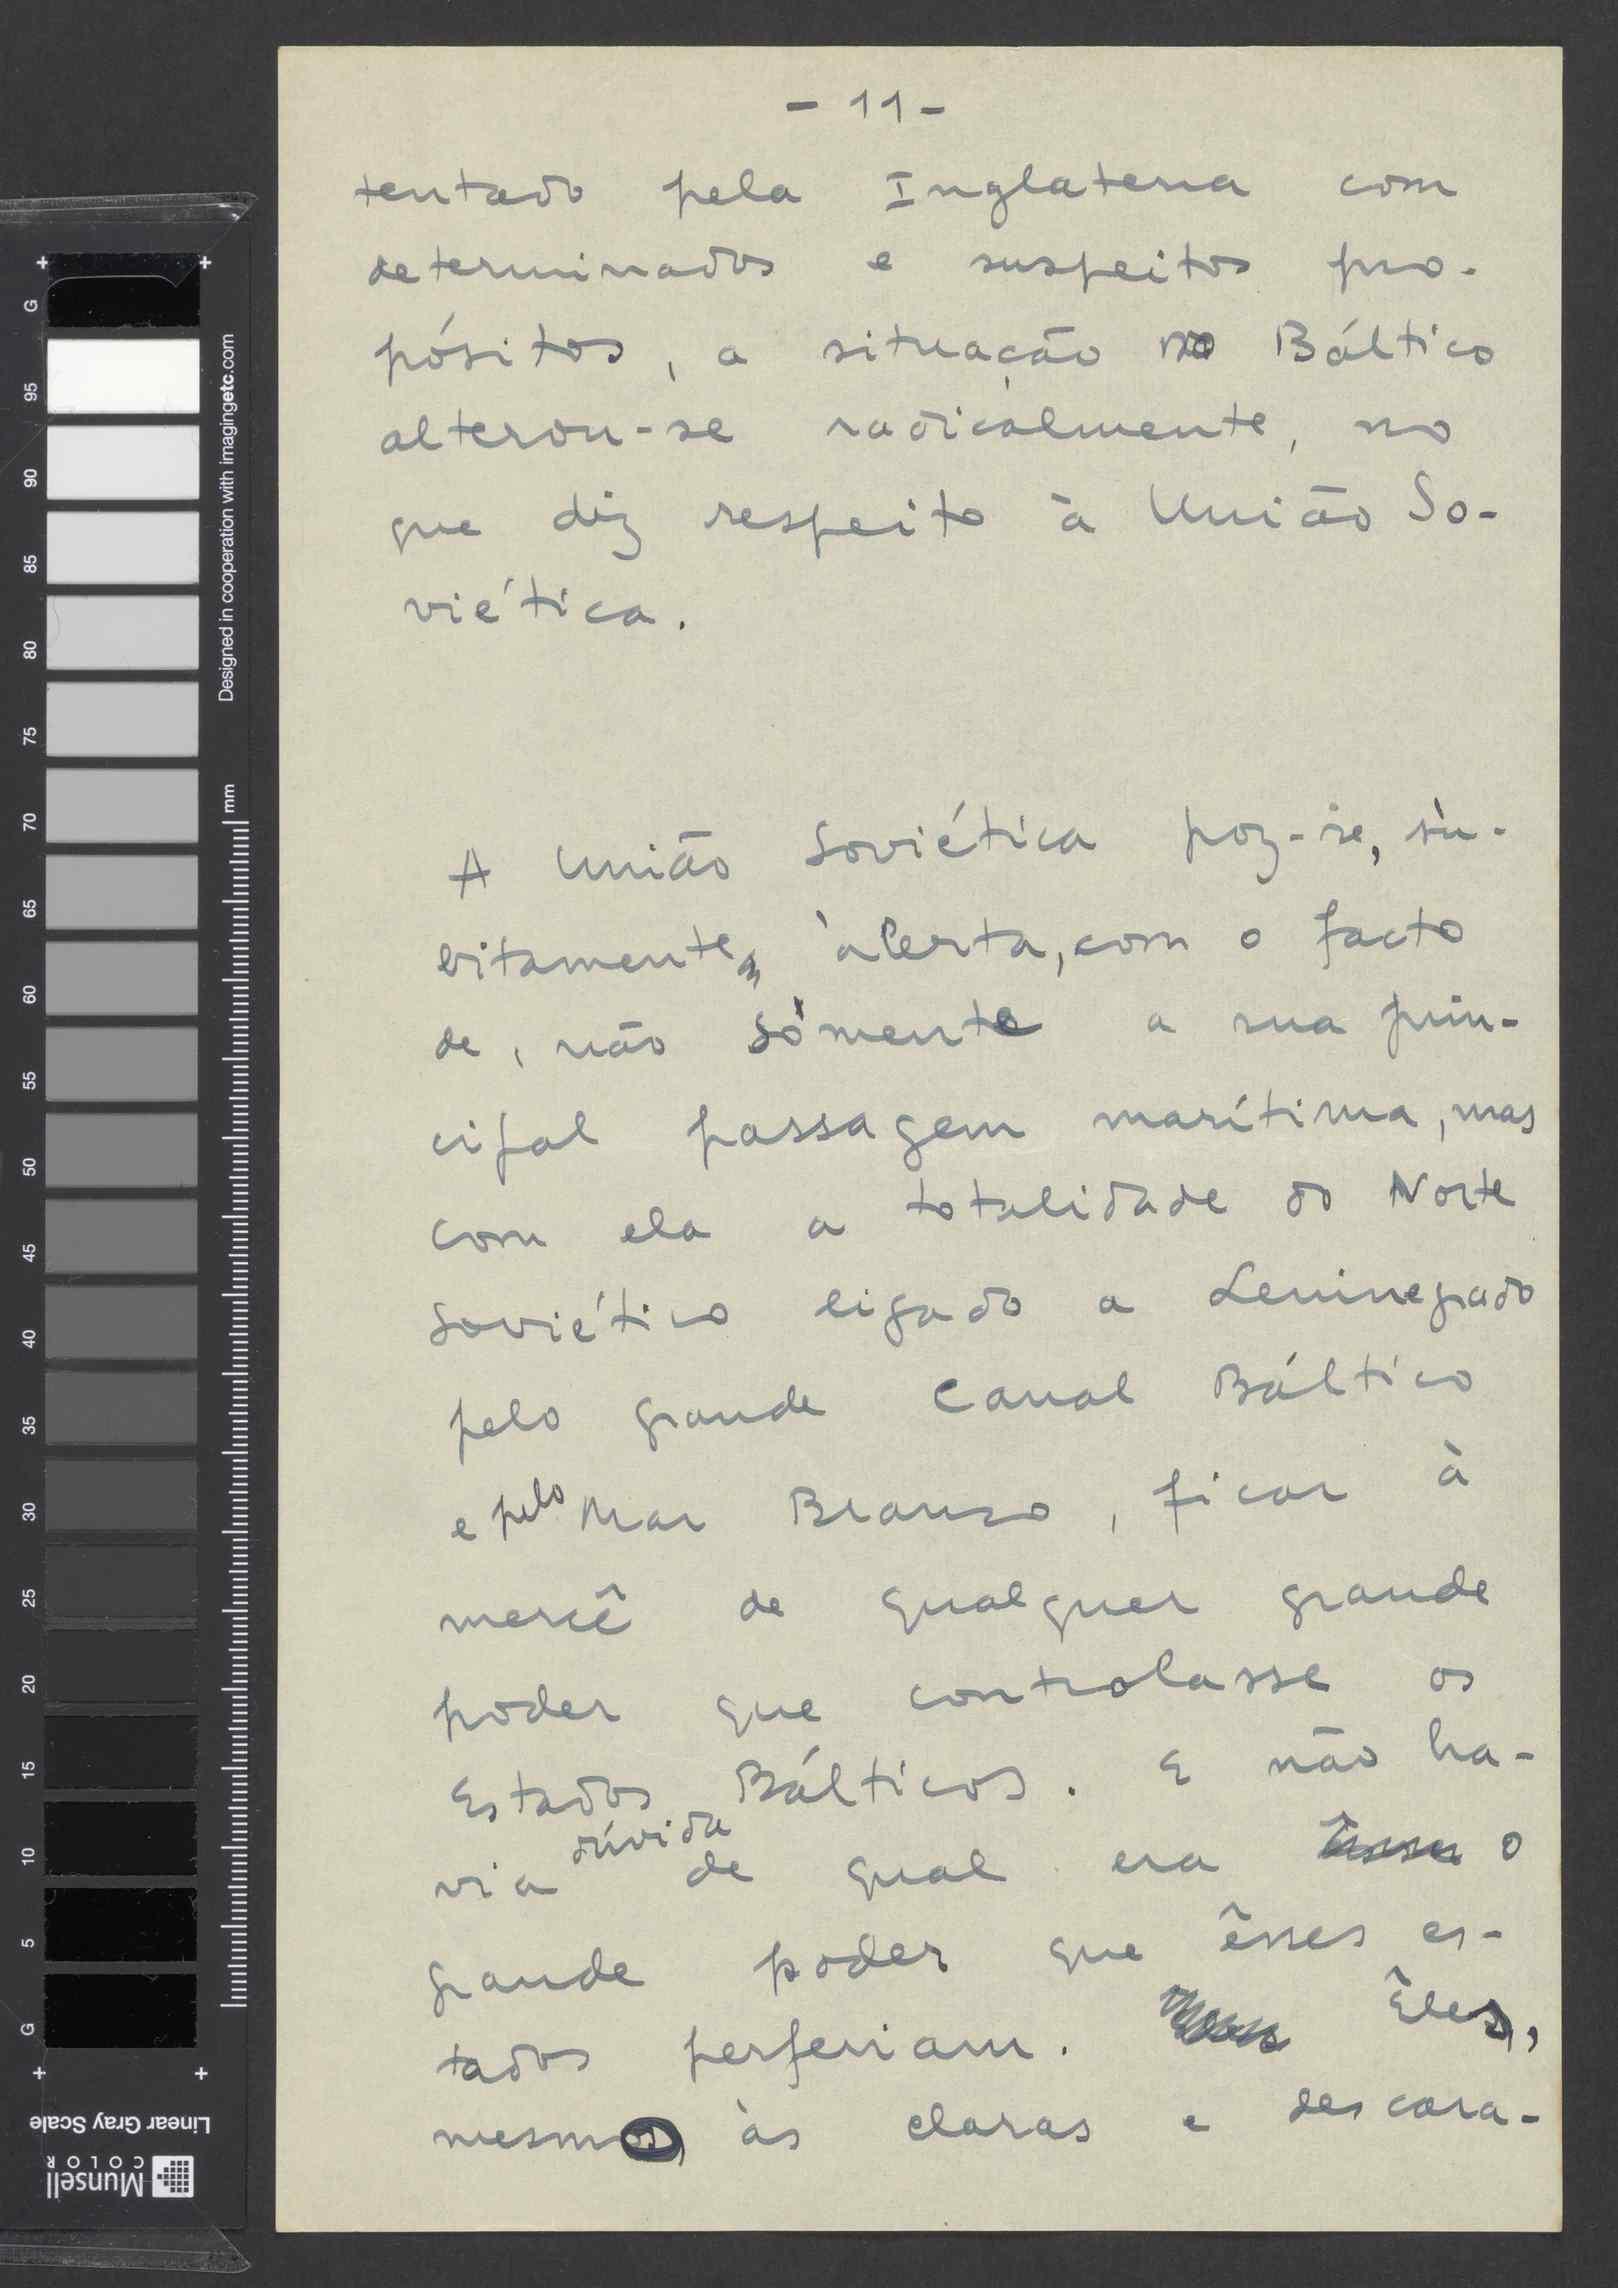 - 11 -
tentado pela Inglaterra com
determinados e suspeitos pro-
pósitos, a situação no Báltico
alterou-se radicalmente, no
que diz respeito à União So-
viética.
A União Soviética poz-se, sù-
bitamente, àlerta, com o facto
de, não sòmente a sua prin-
cipal passagem marítima, mas
com ela a totalidade do Norte
Soviético ligado a Leninegrado
pelo grande Canal Báltico
e pelo Mar Branco, ficar à
mercê de qualquer grande
poder que controlasse os
Estados Bálticos. E não ha-
via dúvida de qual era o
grande poder que êsses es-
tados perferiam. Êles,
mesmos, às claras e descara-
G
95
90
85
80
75
70
65
60
55
50
45
40
35
30
25
20
15
10
5
G
Designed in cooperation with imagingetc.com
mm
Linear Gray Scale
Munsell
COLOR